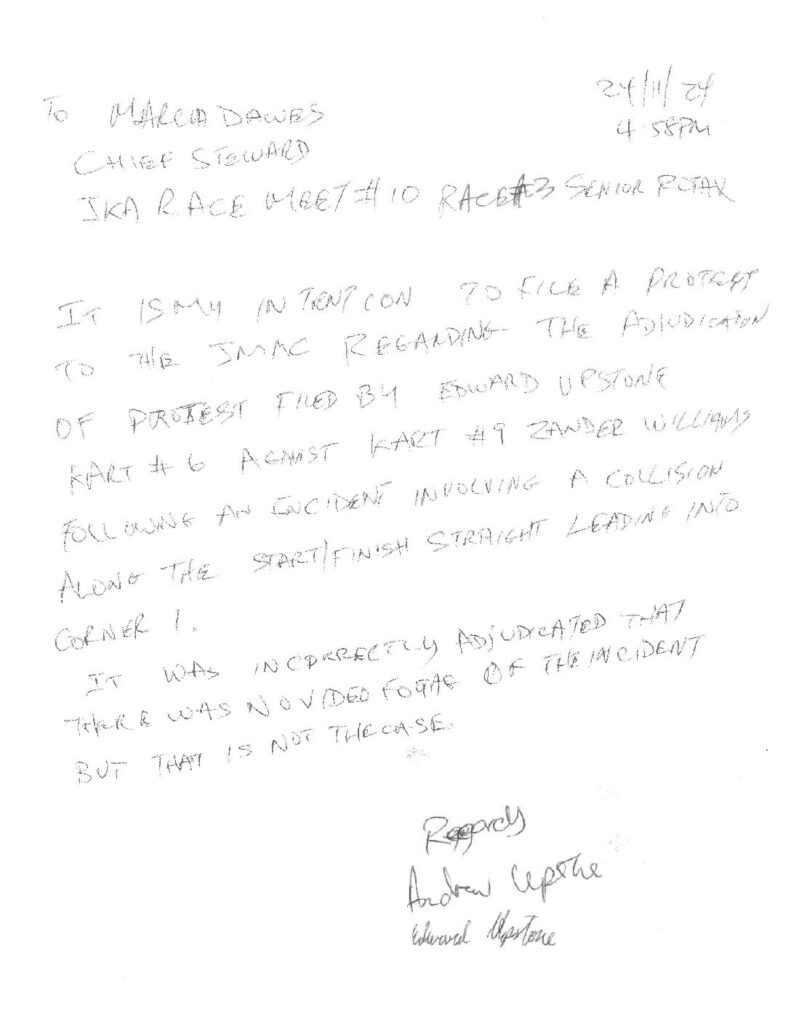 24/11/24
4.58PM
TO MARCIA DAWES
CHIEF STEWARD
JKA RACE MEET #10 RACE #3 SENIOR ROTAX
IT IS MY INTENTION TO FILE A PROTEST
TO THE JMMC REGARDING THE ADJUDICATION
OF PROTEST FILED BY EDWARD UPSTONE
KART # 6 AGAINST KART #9 ZANDER WILLIAMS
FOLLOWING AN INCIDENT INVOLVING A COLLISION
ALONG THE START/FINISH STRAIGHT LEADING INTO
CORNER 1.
IT WAS INCORRECTLY ADJUDICATED THAT
THERE WAS NO VIDEO FOTAGE OF THE INCIDENT
BUT THAT IS NOT THE CASE.
Regards
Andrew Upstone
Edward Upstone